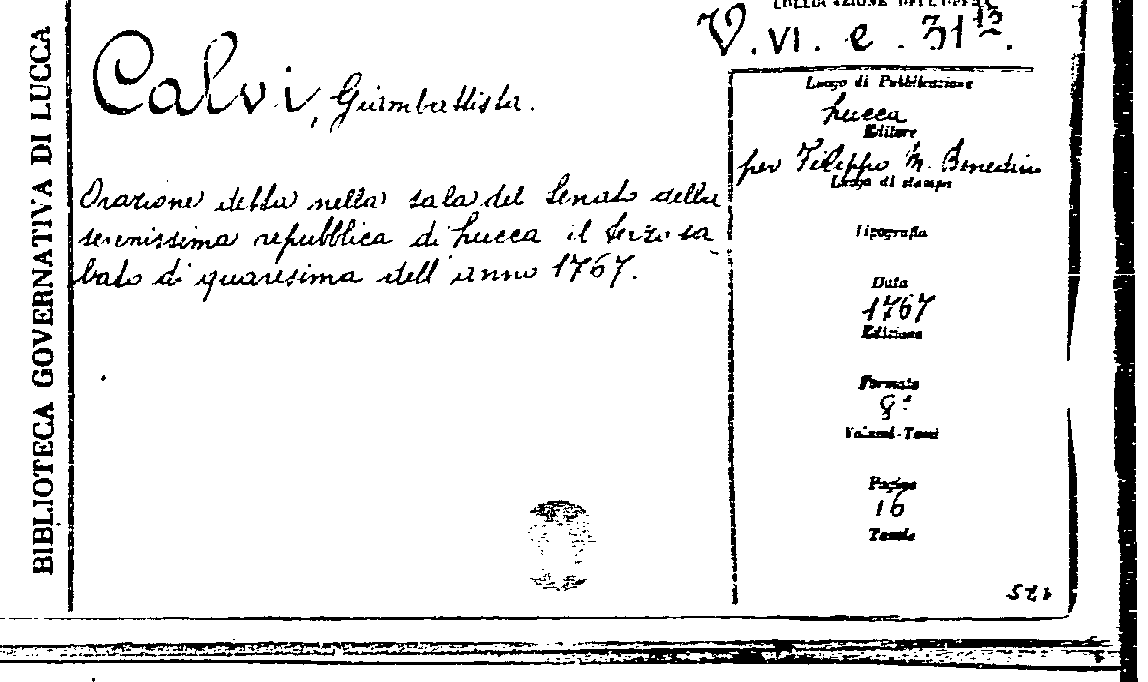 COLLOCAZIONE DELL'OPERA
V. VI. e. 31 13.
BIBLIOTECA GOVERNATIVA DI LUCCA
Calvi, Giambattista.
Orazione detta nella sala del Senato della
serenissima repubblica di Lucca il terzo sa
bato di quaresima dell'anno 1767.
Luogo di Pubblicazione
Lucca
Editore
per Filippo M. Benedini
Luogo di stampa
Tipografia
Data
1767
Edizione
Formato
8°
Volumi-Tomi
Pagine
16
Tavole